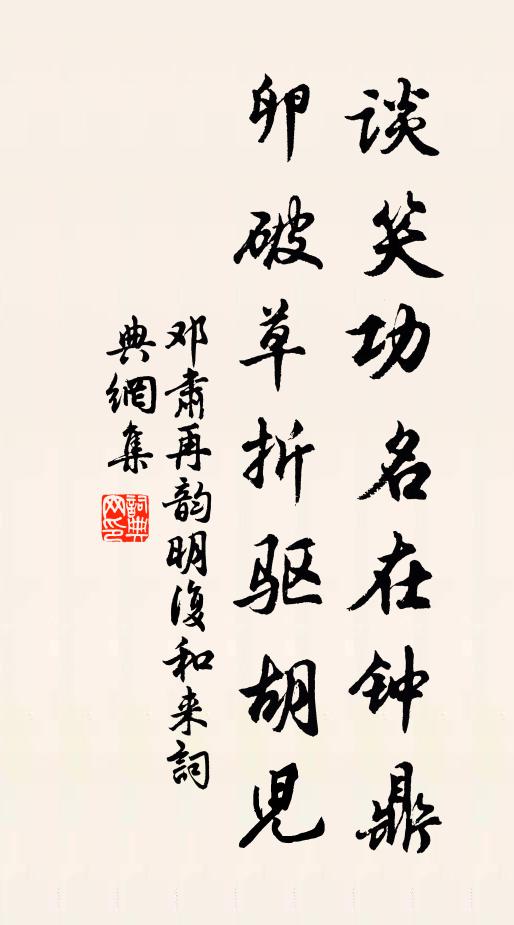 谈笑功名在钟鼎
卵破草折驱胡児
邓肃再韵明復和来詞
典網集
詞典网印